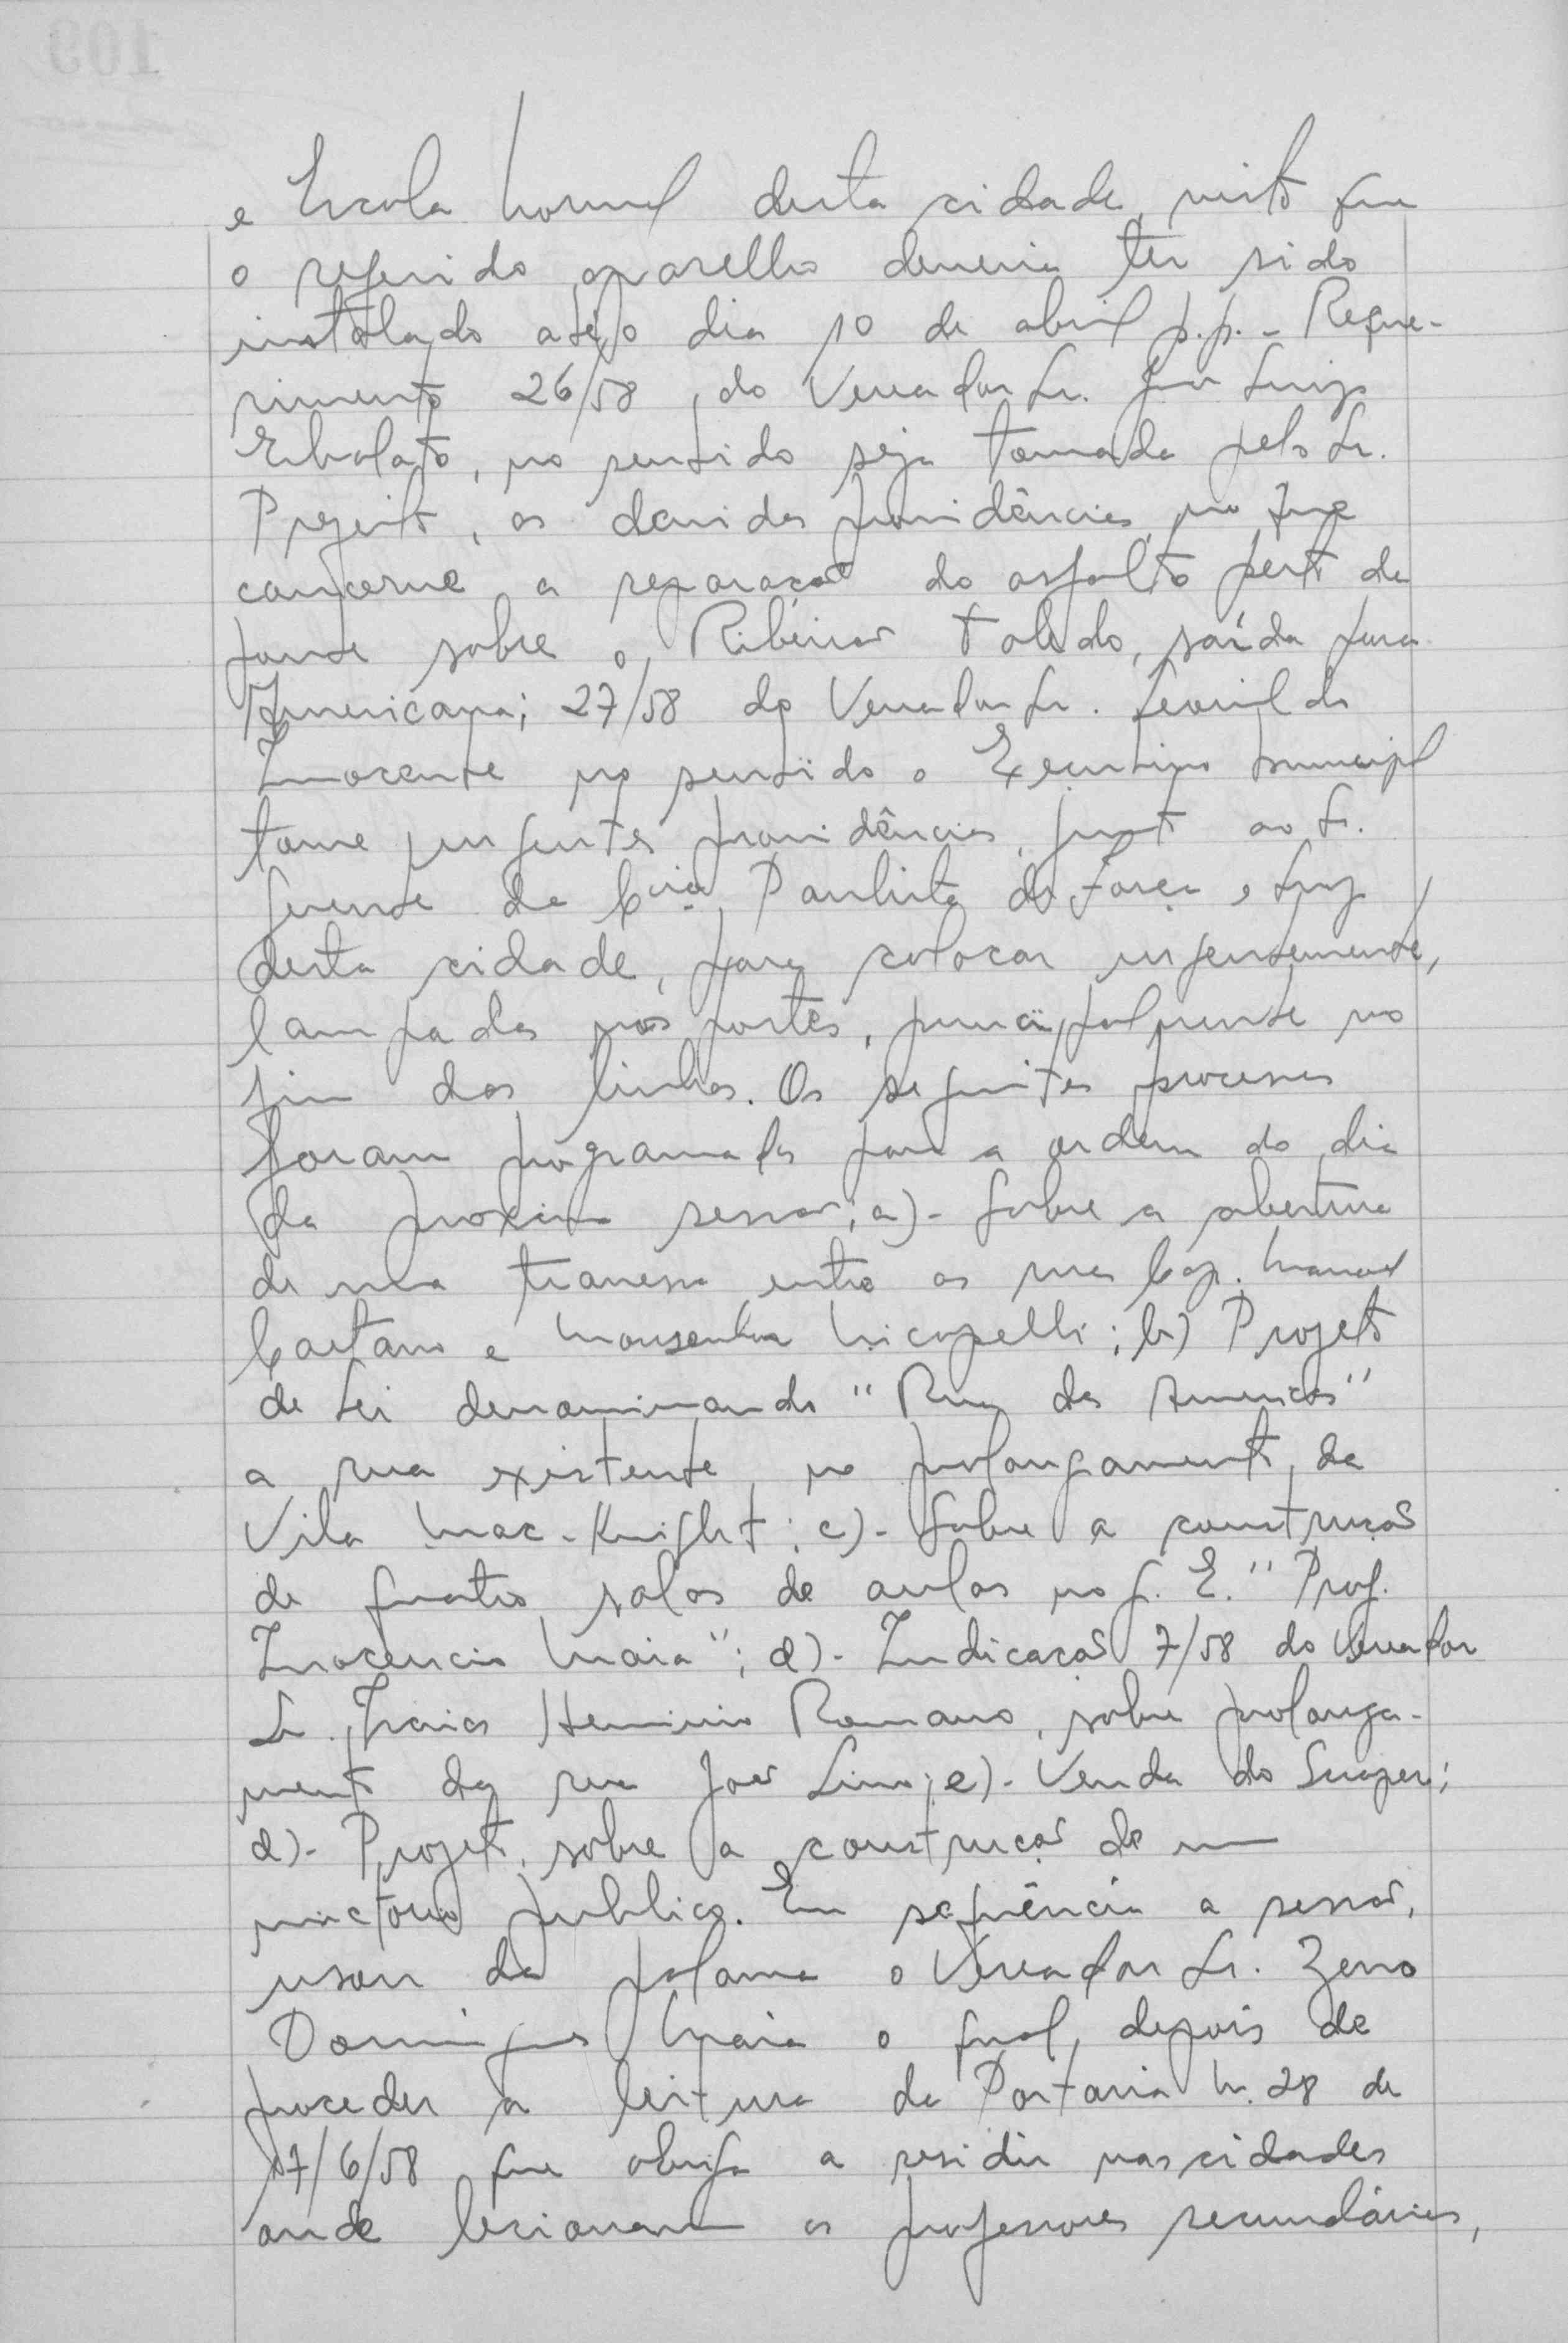 e Escola Normal desta cidade, visto que
o referido aparelho deveria ter sido
instalado até o dia 10 de abril p.p. - Reque-
rimento 26/58, do Vereador Sr. José Luiz
Erbolato, no sentido seja tomada pelo Sr.
Prefeito, as devidas providências, no que
concerne a reparação do asfalto perto da
ponte sobre o Ribeirão Toledo, saída para
Americana; 27/58 do Vereador Sr. Leovil do
Inocente no sentido o Executivo Municipal
tome urgentes providências, junto ao Sr.
Gerente da Cia. Paulista de Força e Luz
desta cidade, para colocar urgentemente,
lampadas nos postes, principalmente no
fim das linhas. Os seguintes processos
foram programados para a ordem do dia
da proxima sessão; a)- Sobre a abertura
de uma travessa entre as ruas Cap. Manoel
Caetano e Monsenhor Nicopelli; b) Projeto
de Lei denominando "Rua das Americas"
a rua existente, no prolongamento, da
Vila Mac-Knight; c)- Sobre a construção
de quatro salas de aulas no G. E. "Prof.
Inocencio Maia"; d)- Indicação 7/58 do Vereador
Sr. Isaias Herminio Romano, sobre prolonga-
mento da rua João Lino; e)- Venda do
d)- Projeto, sobre a construção de um
mictorio publico. Em seqüência a sessão,
usou da palavra o Vereador Sr. Zeno
Domingues Maia o qual, depois de
proceder a leitura da Portaria N. 28 de
17/6/58 que obriga a residir nas cidades
onde lecionam os professores secundários,